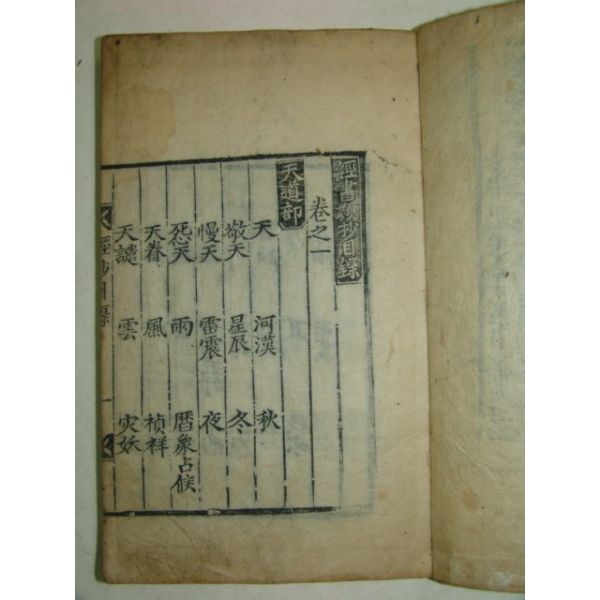 經書類抄目錄
卷之一
天道部
天 河漢 秋
敬天 星辰 冬
慢天 雷震 夜
㤪天 雨 暦象占候
天眷 風 禎祥
天譴 雲 灾妖
經抄目錄 一